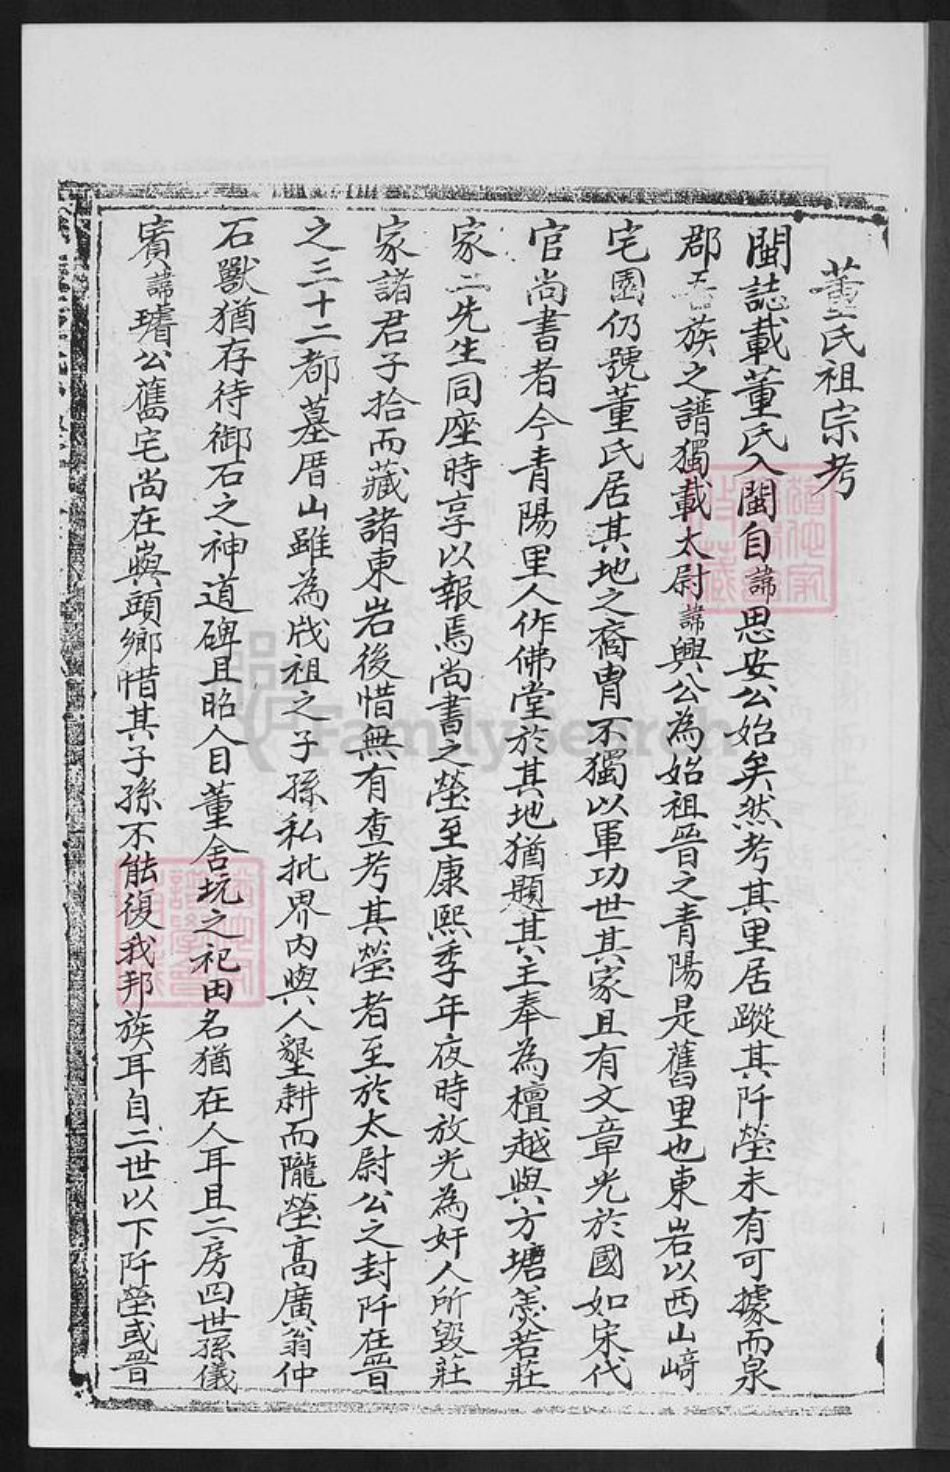 董氏祖宗考
閩誌載董氏入閩自諱思安公始矣然考其里居蹤其阡塋未有可據而泉
郡吾族之譜獨載太尉諱興公為始祖晉之青陽是舊里也東岩以西山﨑
宅園仍號董氏居其地之裔冑不獨以軍功世其家且有文章光於國如宋代
官尚書者今青陽里人作佛堂於其地猶題其主奉為檀越與方塘羡若莊
家二先生同座時享以報焉尚書之塋至康熙季年夜時放光為奸人所毀莊
家諸君子拾而藏諸東岩後惜無有查考其塋者至於太尉公之封阡在晉
之三十二都墓厝山雖為戕祖之子孫私批界內與人墾耕而隴塋高廣翁仲
石獸猶存待御石之神道碑且昭人目董舍坑之祀田名猶在人耳且二房四世孫儀
賓諱璿公舊宅尚在嶼頭鄉惜其子孫不能復我邦族耳自二世以下阡塋或晉
FamilySearch